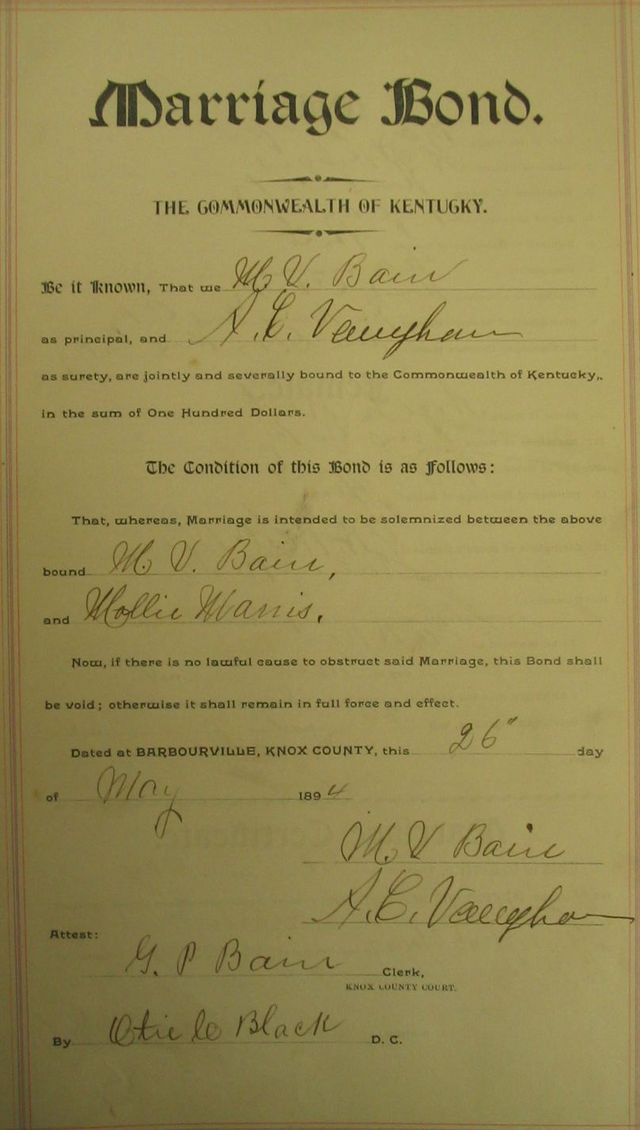 Marriage Bond.
THE COMMONWEALTH OF KENTUCKY.
Be it Known, That we M. V. Bain
as principal, and A. C. Vaughan
as surety, are jointly and severally bound to the Commonwealth of Kentucky,
in the sum of One Hundred Dollars.
The Condition of this Bond is as Follows:
That, whereas, Marriage is intended to be solemnized between the above
bound M. V. Bain,
and Mollie
Now, if there is no lawful cause to obstruct said Marriage, this Bond shall
be void; otherwise it shall remain in full force and effect.
Dated at BARBOURVILLE, KNOX COUNTY, this 26" day
of May 1894
M. V Bain
A. C. Vaughan
Attest:
G. P Bain Clerk,
KNOX COUNTY COURT.
By Black D. C.